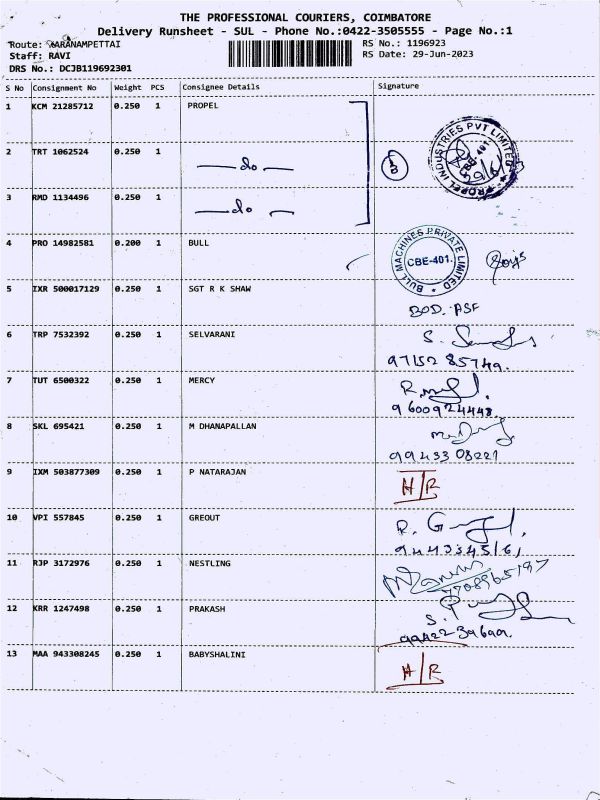 THE PROFESSIONAL COURIERS, COIMBATORE
Delivery Runsheet - SUL - Phone No.:0422-3505555 - Page No.:1
Route: KARANAMPETTAI
RS No.: 1196923
Staff: RAVI
RS Date: 29-Jun-2023
DRS No.: DCJB119692301
S No Consignment No Weight PCS Consignee Details Signature
1 KCM 21285712 0.250 1 PROPEL
PROPEL INDUSTRIES PVT LIMITED CBE-401
2 TRT 1062524 0.250 1 do
3 RMD 1134496 0.250 1 do
4 PRO 14982581 0.200 1 BULL
BULL MACHINES PRIVATE LIMITED CBE-401.
5 IXR 500017129 0.250 1 SGT R K SHAW
BOD. PSF
6 TRP 7532392 0.250 1 SELVARANI
97152 85749.
7 TUT 6500322 0.250 1 MERCY
9600924448.
8 SKL 695421 0.250 1 M DHANAPALLAN
99433 08221
9 IXM 503877309 0.250 1 P NATARAJAN H/R
10 VPI 557845 0.250 1 GREOUT
11 RJP 3172976 0.250 1 NESTLING
7708965797
12 KRR 1247498 0.250 1 PRAKASH
13 MAA 943308245 0.250 1 BABYSHALINI H/R